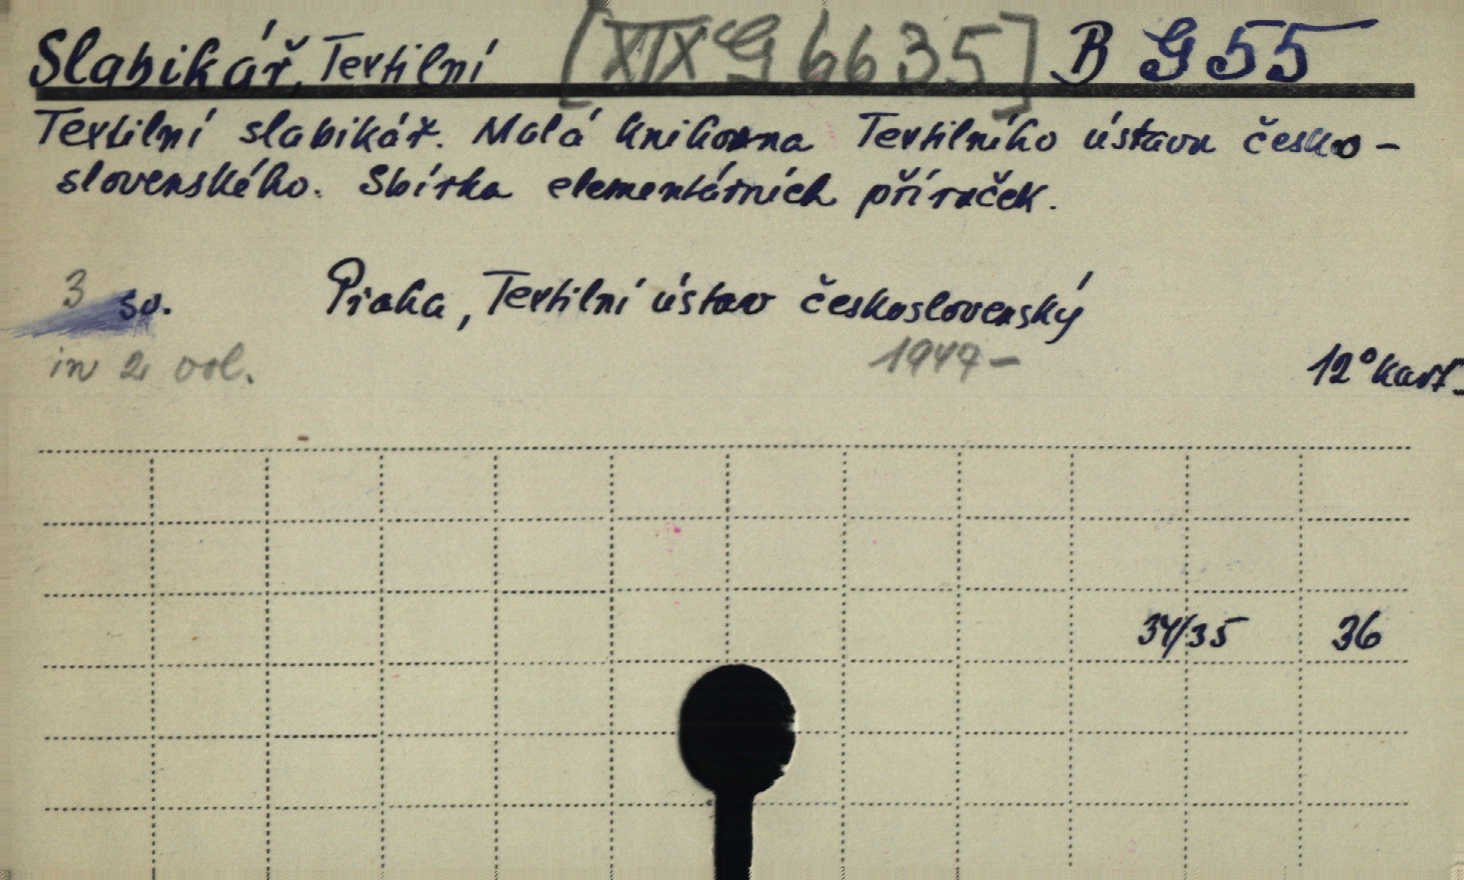 Slabikář, Textilní [XIX G 6635] B G 55
Textilní slabikář. Malá knihovna Textilního ústavu česko-
slovenského. Sbírka elementárních příruček.
3 sv. Praha, Textilní ústav československý
in 2 vol. 1947- 12° kart.
34/35 36